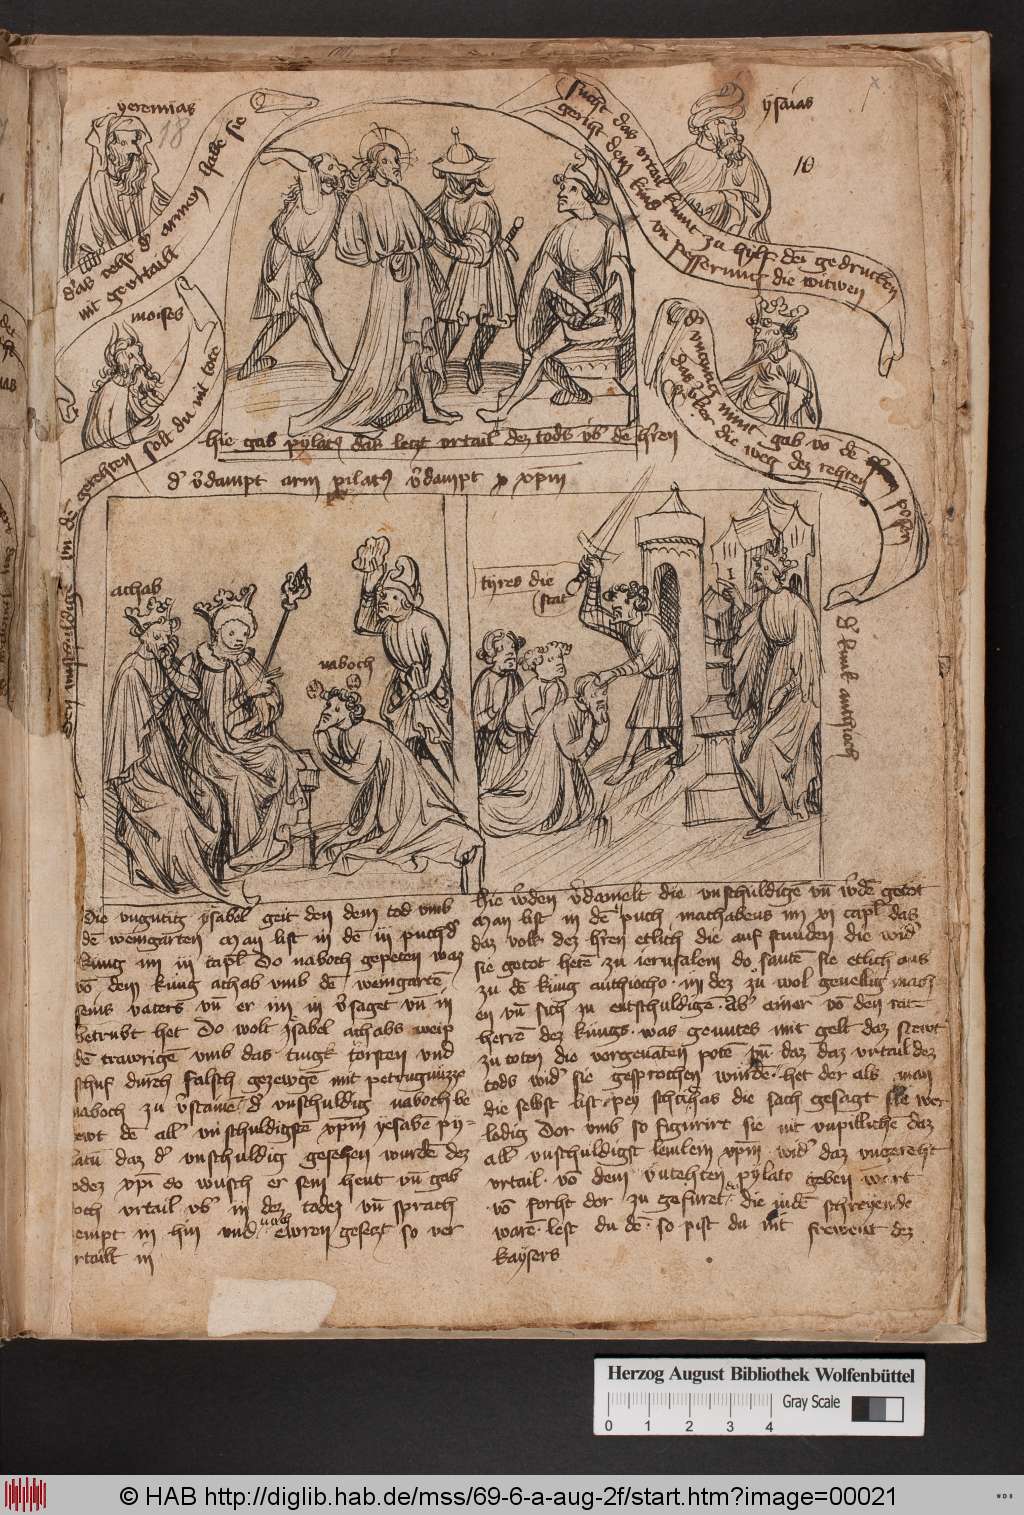 yeremias
18
ysaias
10
das reht d' armen habe sie
nit geurtailt
sucht das urtail kumt zu hylf den gedrukten
geriht dem kind vn pesserung die witwen
moises
solt du nit tote
den unschuldige vn de gerehten
d' unrainig nimt gab vo de posen
das v'ker die weg dez rehten
hie gab pylat9 daz letzt urtail dez tods vb' de h'ren
d' v'dampt arm pilat9 v'dampt xpm
athab
naboch
tyres die
stat
d' kunk anthioch
Die ungutig ysabel geit den dem tod umb
de weingarten Man list in de iii puch d'
kung im iii capl Do naboch gepeten waz
vo dem kung achab umb de weingarte
seins vaters vn er im in v'saget vn in
betrubt het Do wolt Jsabel achabs weip
de trawrige umb das tingk torsten und
schuf durch falsch gezewge mit petrugnüzze
naboch zu v'staine d' unschuldig naboch be
dewt de all' unschuldigste xpm yesabe py-
latu daz d' unschuldig gesehen wurde dez
todez xpi do wusch er sein hent vn gab
doch urtail vb' in dez todez vn sprach
nempt in hin und nach ewren gesetzt so ver
urtailt in
Hie w'den v'damelt die unschuldige vn w'de getot
Man list in de puch machabeus im vi capl das
daz volk dez h'ren etlich die auf stunden die wid'
sie getot hete zu ierusalem do sante sie etlich aus
zu de kung anthiocho
en vn sich zu entschuldige. Ab' ainer vo den rat-
herre dez kungs. was gemutes mit gelt daz stewt
zu toten die vorgenaten pote vn daz daz urtail dez
tods wid' sie gesprochen würde het der als man
die selbst list pey schithas die sach gesagt sie wer
ledig Dor umb so figurirt sie nit unpilliche daz
all' unschuldigst lemlein xpm wid' daz ungereht
urtail vo dem unrehten pylato geben wert
vo forht dor zu gefüret die jude schreyende
ware lest du de so pist du nit frewent dez
kaysers
Herzog August Bibliothek Wolfenbüttel
0 1 2 3 4
Gray Scale
© HAB http://diglib.hab.de/mss/69-6-a-aug-2f/start.htm?image=00021